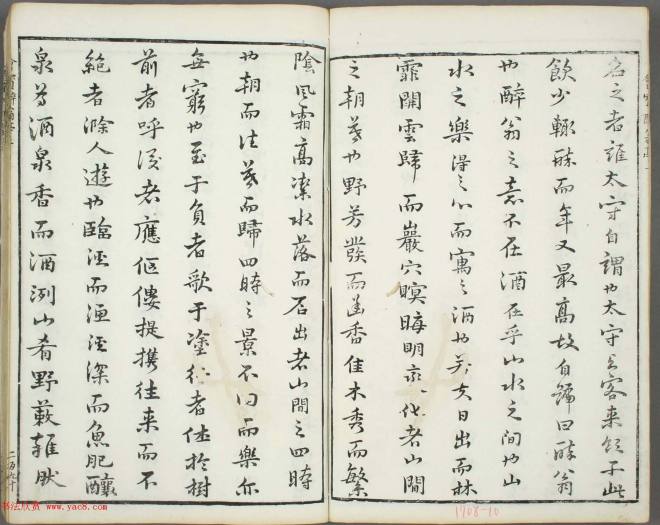 名之者誰太守自謂也太守与客来飲于此
飲少輒醉而年又最高故自號曰醉翁
也醉翁之意不在酒在乎山水之间也山
水之樂得之心而寓之酒也若夫日出而林
霏開雲歸而巖穴暝晦明變化者山間
之朝暮也野芳發而幽香佳木秀而繁
陰風霜高潔水落而石出者山間之四時
也朝而往暮而歸四時之景不同而樂亦
無窮也至于負者歌于塗行者休於樹
前者呼後者應傴僂提携往来而不
絶者滁人遊也臨溪而漁溪深而魚肥釀
泉為酒泉香而酒洌山肴野蔌雜然
1908-10
书法欣赏 www.yac8.com